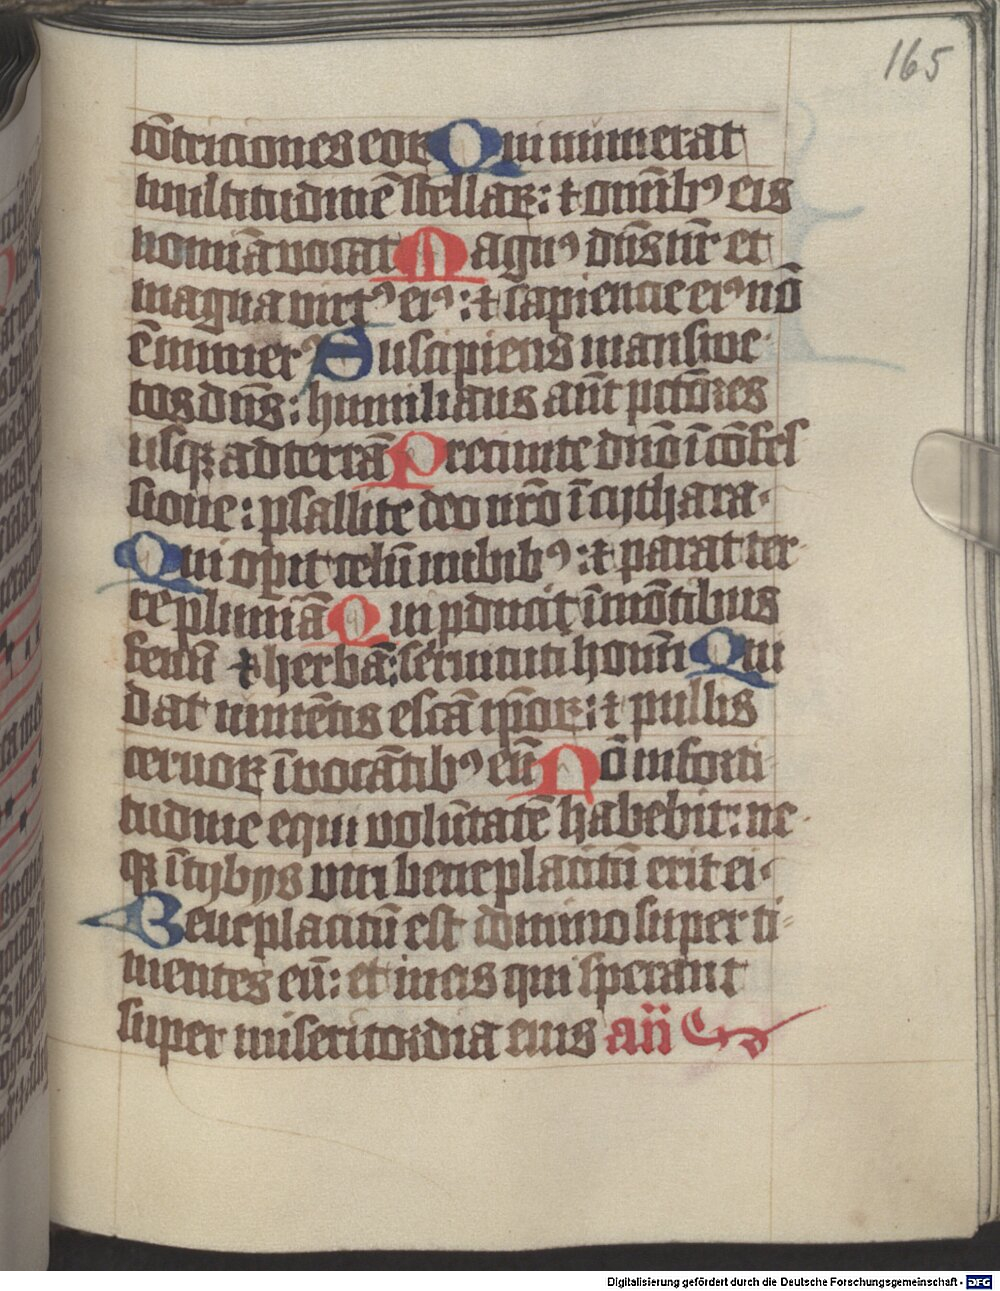 165
cōtriciones eoꝝ Qui nūmerat
multitudinē stellaꝝ: ⁊ omīb⁹ eis
nomīa vocat Magn⁹ dn̄s nr̄ et
magna virt⁹ ei⁹: ⁊ sapiencie ei⁹ nō
ē numer⁹ Suscipiens mansue
tos dn̄s: humilians aūt pctōres
usqꝫ ad terrā Precinite dn̄o ī cōfes
sione: psallite deo nr̄o ī cythara
Qui opit celū nubib⁹: ⁊ parat ter
re pluuiā Qui pducit ī mōtibus
fenū ⁊ herbā: seruituti homī Qui
dat iumētis escā ip̄oꝝ: ⁊ pullis
coruoꝝ īvocātib⁹ eū Nō in forti
tudine equi volūtatē habebit: ne
qꝫ ī tybijs viri beneplacitū erit ei
Beneplacitū est domino super ti-
mentes eū: et in eis qui sperant
super misericordia eius an̄
Digitalisierung gefördert durch die Deutsche Forschungsgemeinschaft - DFG